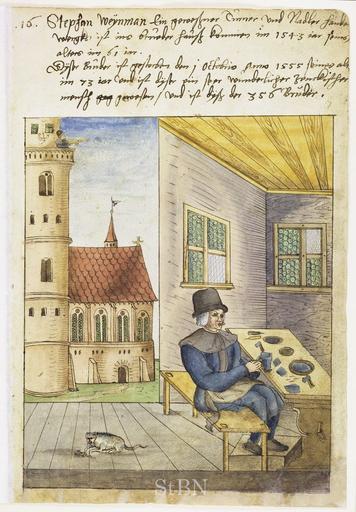 16. Steffan Weynman Ein gewesner Zinner und Nadler
ist ins bruder hauß kommen im 1543 iar seins
alters im 61 iar.
Dyser Bruder ist gestorben den 1 Octobris Anno 1555 seins alt
im 73 iar und ist dyser ein ser wunderlicher zenckischer
mensch gewesen / und ist dyß der 356 Bruder.
StBN